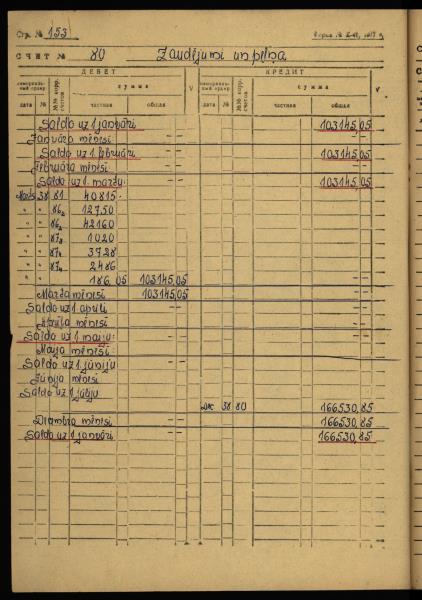 Стр. № 153
СЧЕТ № 80 Zaudējumi un peļņa
ДЕБЕТ КРЕДИТ
сумма сумма
дата № №№ корр. счетов частная общая V дата № №№ корр. счетов частная общая V
Saldo uz 1 janvāri 103145,05
Janvāra mēnesi -- --
Saldo uz 1 februāri -- 103145,05
Februāra mēnesi -- --
Saldo uz 1 martu: 103145,05
Marts 38 81 40815.-
" " 86₂ 12750
" " 86₂ 42160
" " 87₃ 1020
" " 87₄ 3728
" " 87₄ 2486
" " 186,05 103145,05 --
Marta mēnesi 103145,05 --
Saldo uz 1 aprīli -- --
Aprīļa mēnesi -- --
Saldo uz 1 maiju: -- --
Maija mēnesi -- --
Saldo uz 1 jūniju -- --
Jūnija mēnesi
Saldo uz 1 jūliju
Dec 38 80 166530,85
mēnesi -- 166530,85
Saldo uz 1 janvāri -- 166530,85